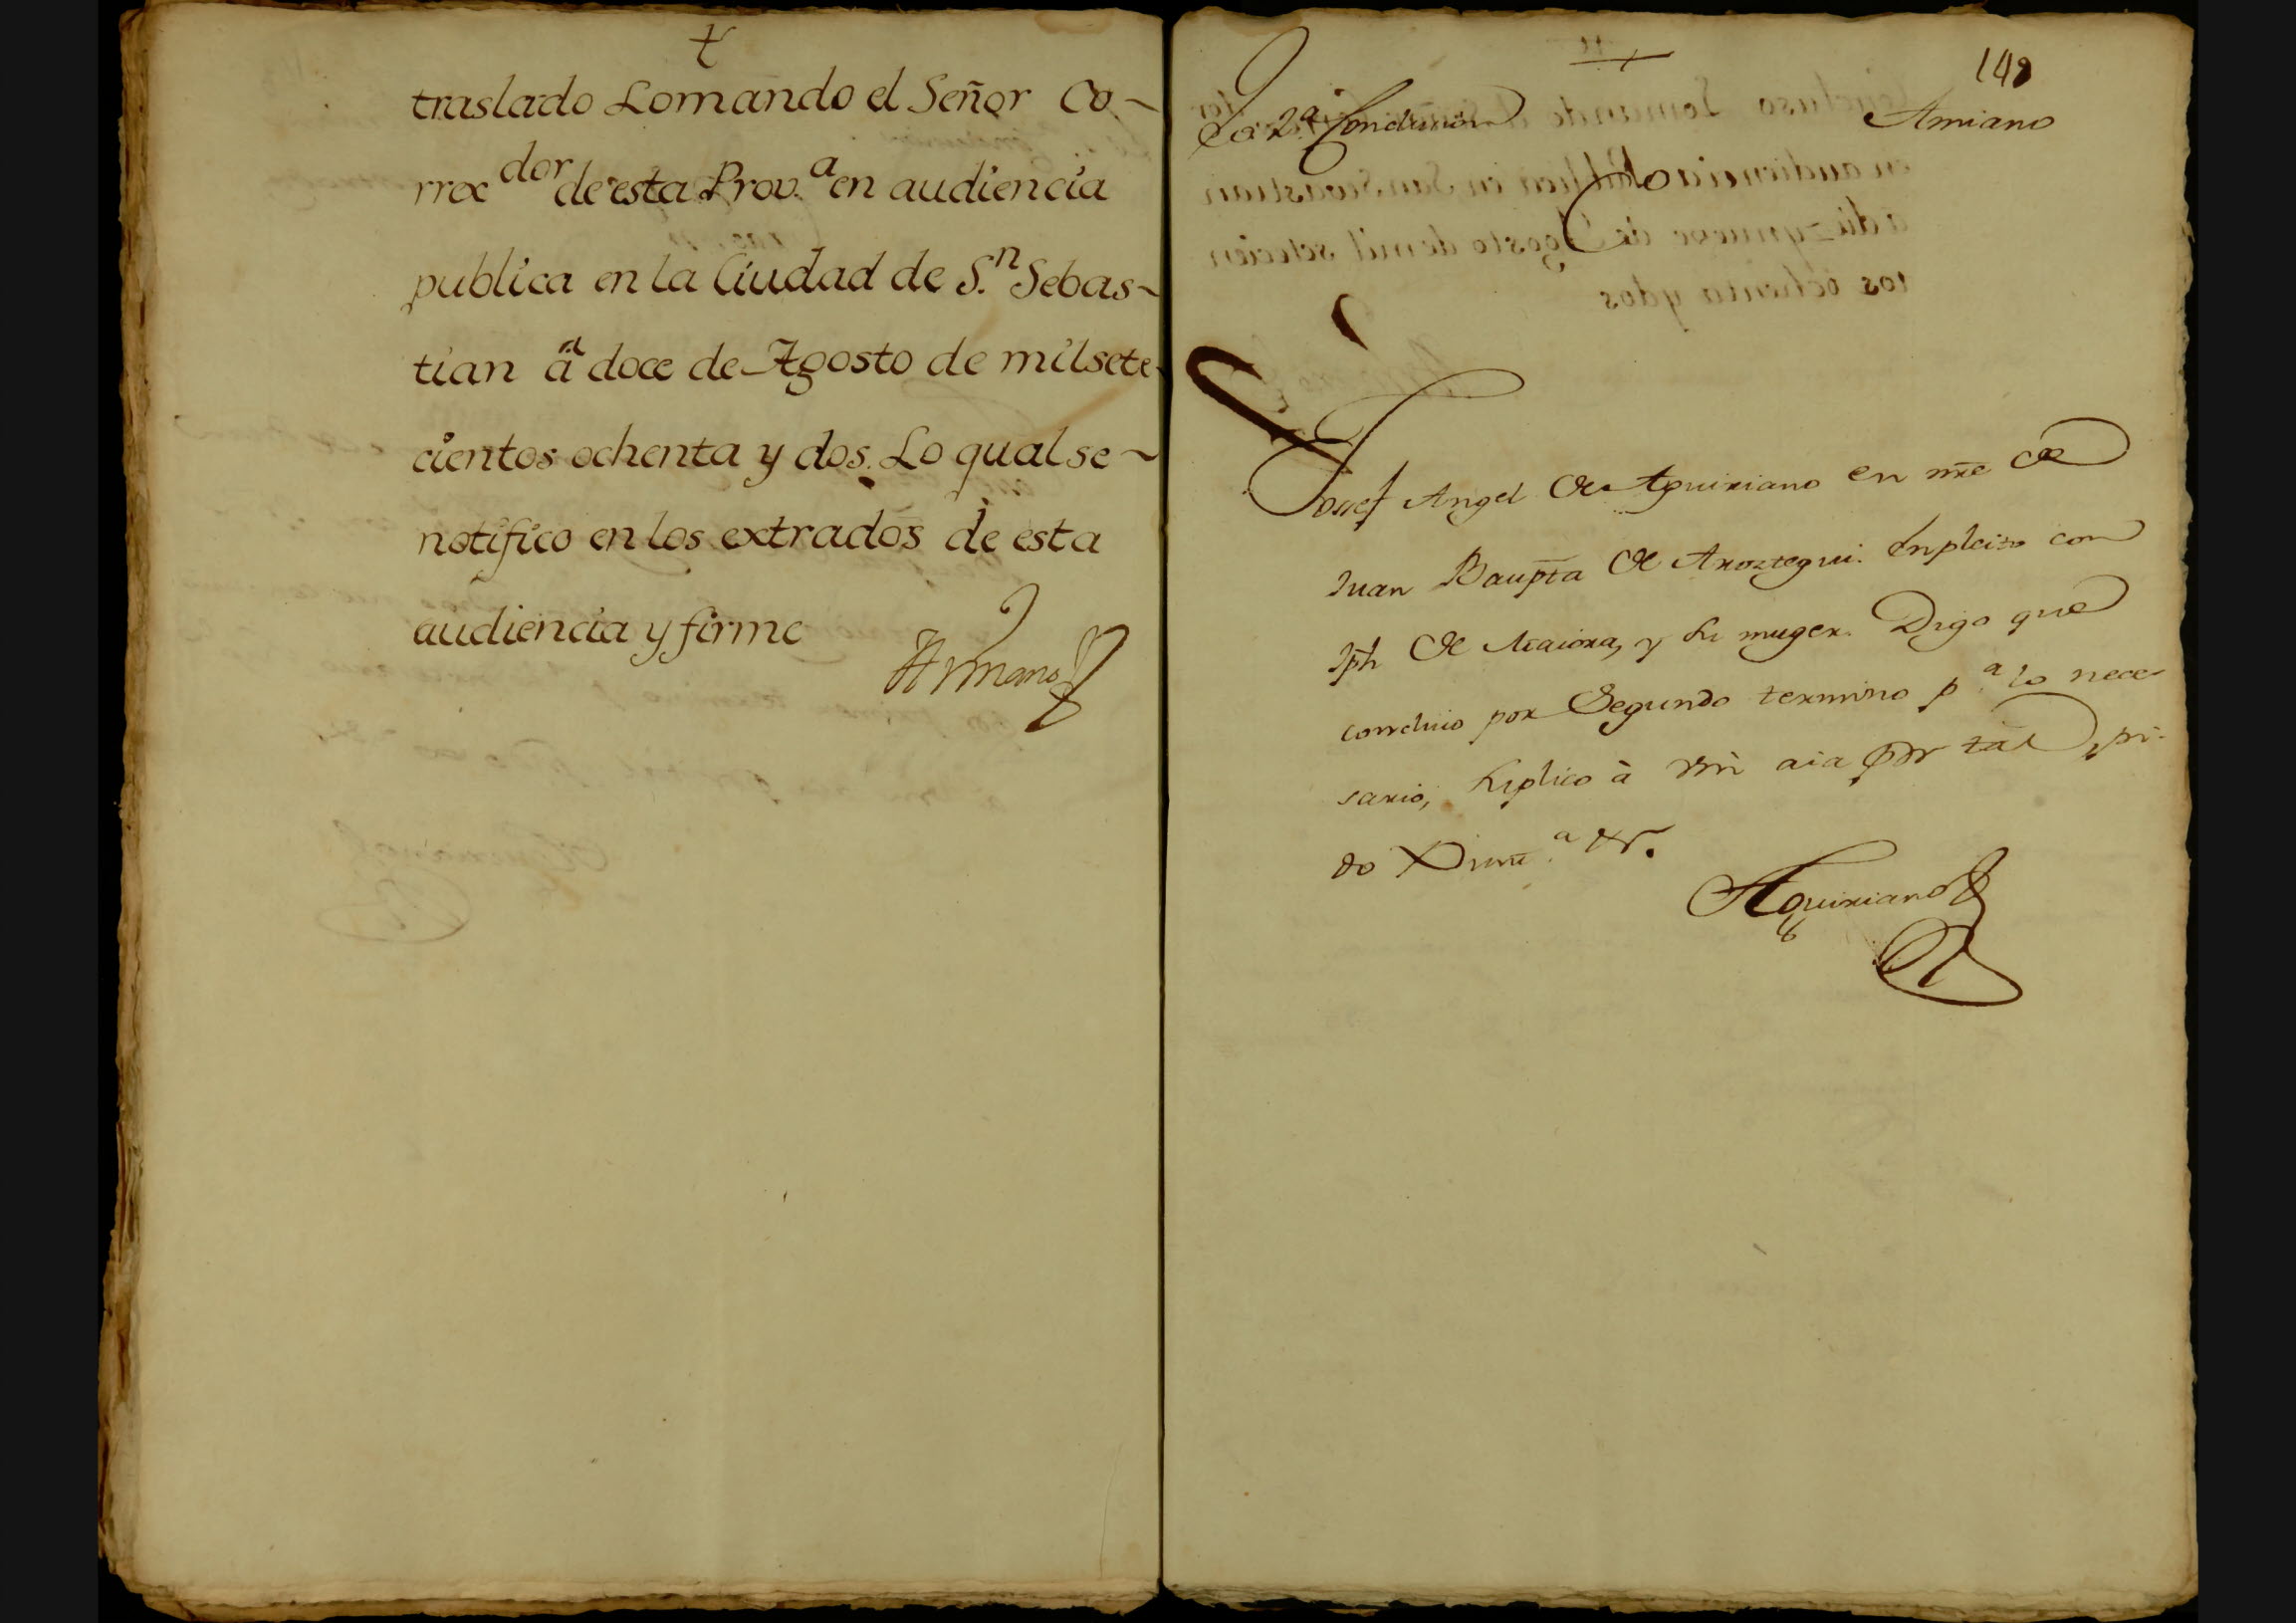 traslado Lomando el Señor Co-
rrexdor de esta Prov.a en audiencia
publica en la Ciudad de S.n Sebas-
tian â doce de Agosto de milsete
cientos ochenta y dos. Lo qual se
notifico en los extrados de esta
audiencia y firme
Armano
149
2.a Conclusion
Amiano
Josef Angel de Aguiriano en nre de
Juan Baupta de Aroztegui. Enpleito con
Jph de y su muger. Digo que
concluio por Segundo termino p.a lo nece-
sario, suplico à Vm aia por tal, pi-
do Xpnu.a &r.
Aguiriano